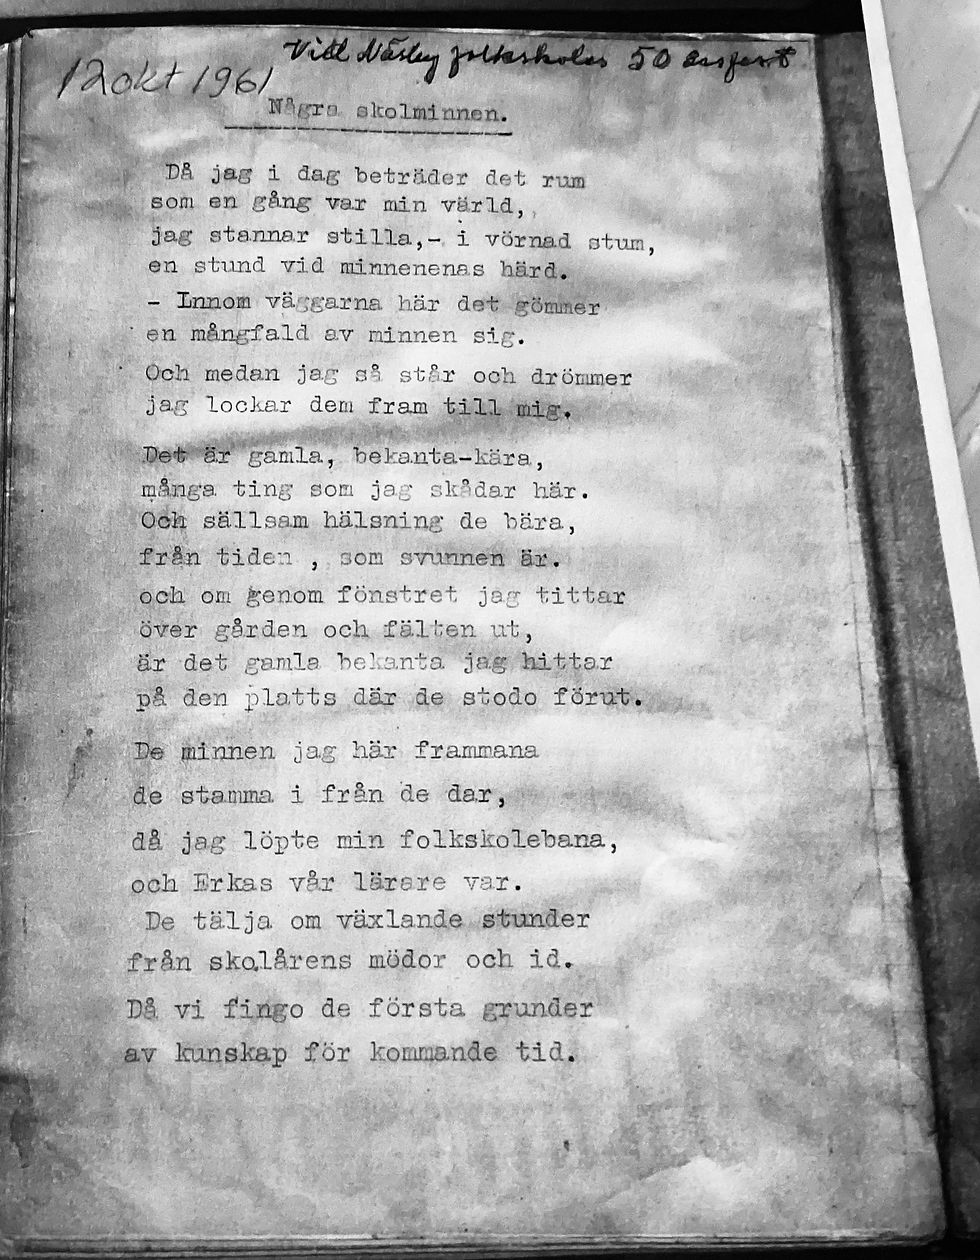 Vid Näsby folkskolas 50 årsfest
12 okt 1961
Några skolminnen.
Då jag i dag beträder det rum
som en gång var min värld,
jag stannar stilla,- i vörnad stum,
en stund vid minnenenas härd.
- Innom väggarna här det gömmer
en mångfald av minnen sig.
Och medan jag så står och drömmer
jag lockar dem fram till mig.
Det är gamla, bekanta-kära,
många ting som jag skådar här.
Och sällsam hälsning de bära,
från tiden , som svunnen är.
och om genom fönstret jag tittar
över gården och fälten ut,
är det gamla bekanta jag hittar
på den platts där de stodo förut.
De minnen jag här frammana
de stamma i från de dar,
då jag löpte min folkskolebana,
och Erkas vår lärare var.
De tälja om växlande stunder
från skolårens mödor och id.
Då vi fingo de första grunder
av kunskap för kommande tid.